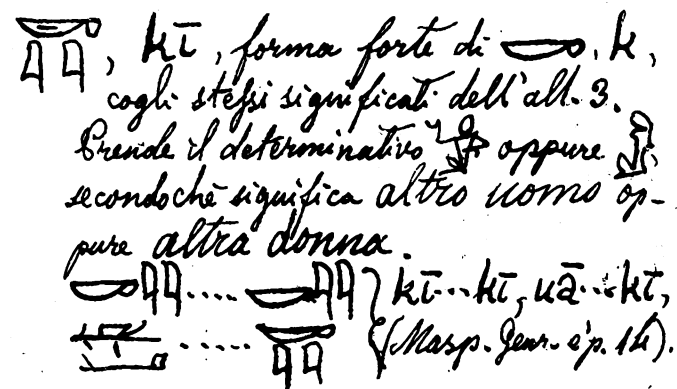 𓎡𓇋𓇋, kī, forma forte di 𓎡, k,
cogli stessi significati dell'all. 3.
Prende il determinativo 𓀀 oppure 𓁐,
secondochè significa altro uomo op-
pure altra donna.
𓎡𓇋𓇋.... 𓎡𓇋𓇋 } kī...kī, uā...kī,
..... 𓎡𓇋𓇋 (Masp. Genr. ép. 14).